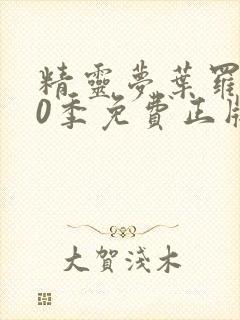 精靈夢葉羅
0季免費正版
大賀淺木